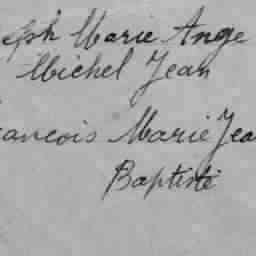 eph Marie Ange
Michel Jean
rancois Marie Jea
Baptiste